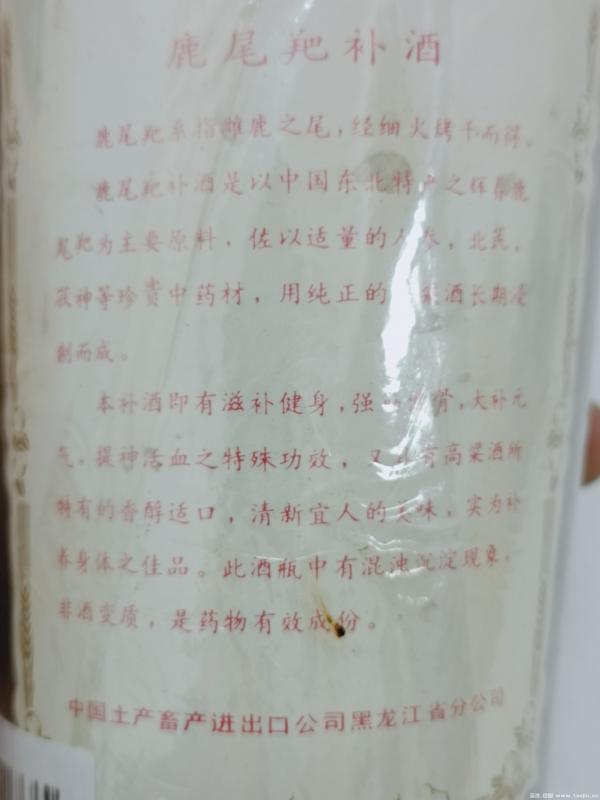 鹿尾羓补酒
鹿尾羓系指雌鹿之尾，经细火烤干而得。
鹿尾羓补酒是以中国东北特产之辉春鹿
尾羓为主要原料，佐以适量的人参，北芪，
茯神等珍贵中药材，用纯正的 酒长期浸
制而成。
本补酒即有滋补健身，强 骨，大补元
气，提神活血之特殊功效，又 有高粱酒所
特有的香醇适口，清新宜人的美味，实为补
养身体之佳品。此酒瓶中有混浊沉淀现象，
非酒变质，是药物有效成份。
中国土产畜产进出口公司黑龙江省分公司